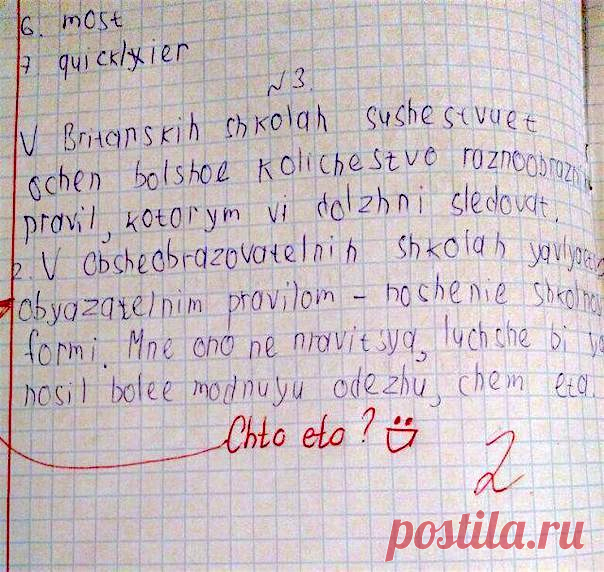 6. most
7 quicklyier
N 3.
V Britanskih shkolah sushestvuet
ochen bolshoe kolichestvo
pravil, kotorym vi dolzhni sledovat.
2. V obsheobrazovatelnih shkolah
obyazatelnim pravilom - noshenie
formi. Mne ono ne nravitsya, luchshe bi
nosil bolee modnuyu odezhu, chem eta.
Chto eto?
2
postila.ru